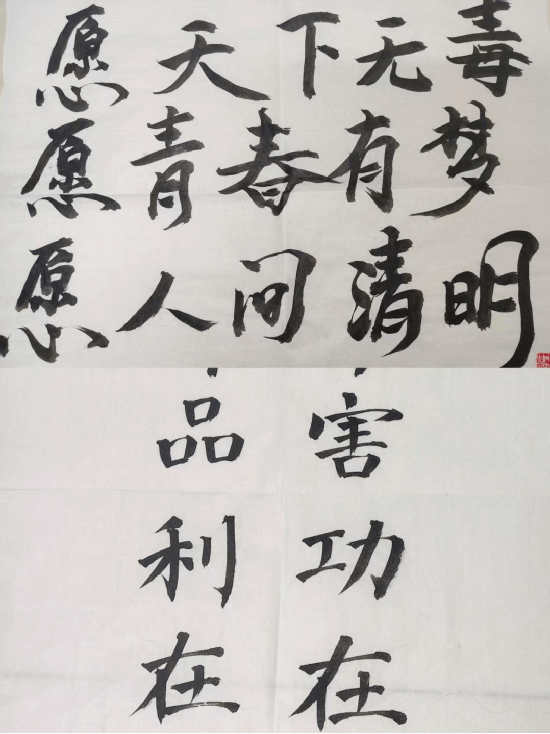 愿天下无毒
愿青春有梦
愿人间清明
害功在
品利在